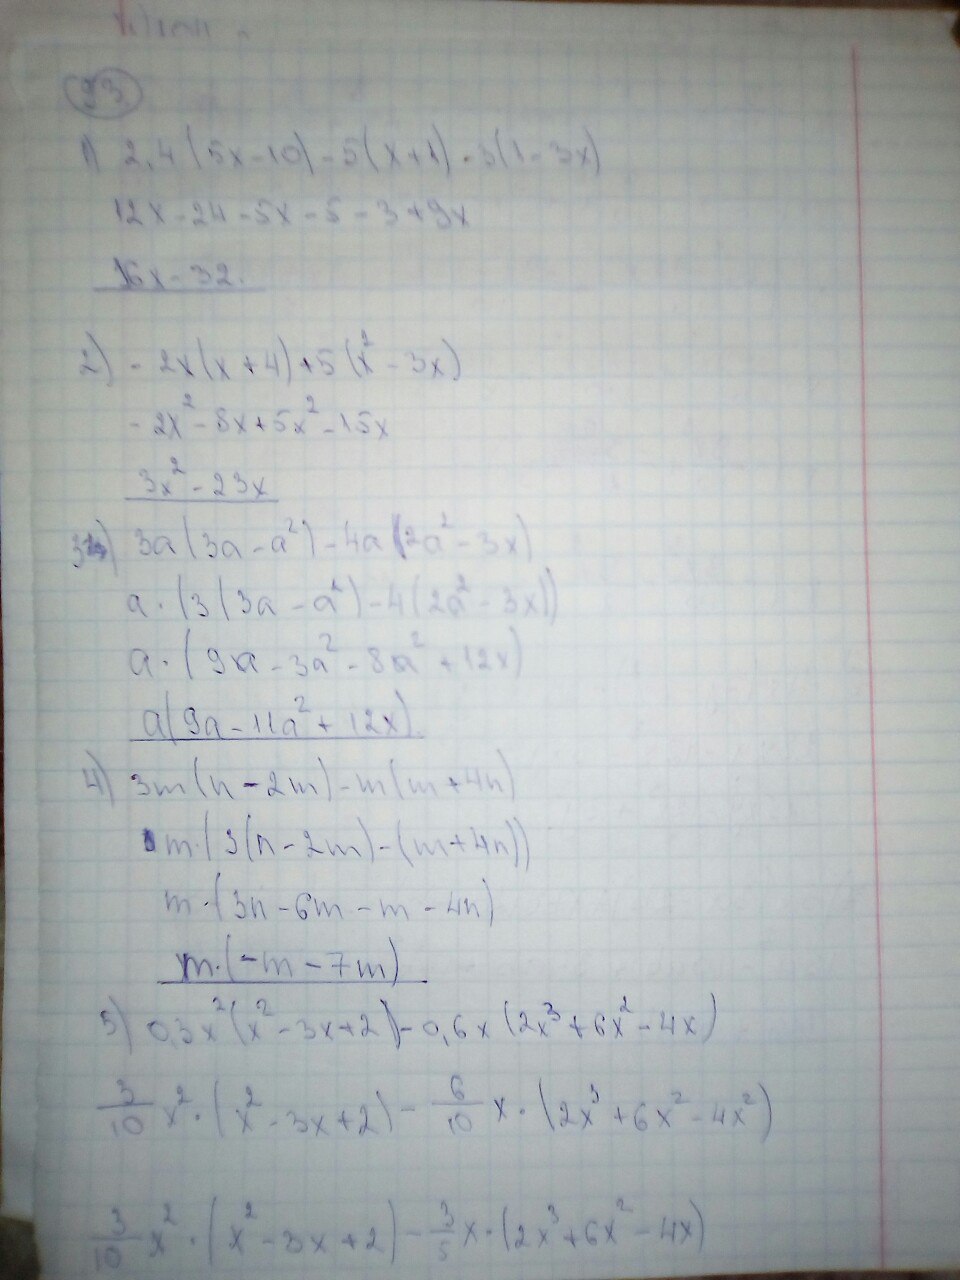 93
1) 2,4(5x-10)-5(x+1)-3(1-3x)
12x-24-5x-5-3+9x
16x-32.
2) -2x(x+4)+5(x²-3x)
-2x²-8x+5x²-15x
3x²-23x
3) 3a(3a-a²)-4a(2a²-3x)
a·(3(3a-a²)-4(2a²-3x))
a·(9a-3a²-8a²+12x)
a(9a-11a²+12x).
4) 3m(n-2m)-m(m+4n)
m·(3(n-2m)-(m+4n))
m·(3n-6m-m-4n)
m·(-m-7m)
5) 0,3x²(x²-3x+2)-0,6x(2x³+6x²-4x)
3/10 x²·(x²-3x+2)-6/10 x·(2x³+6x²-4x²)
3/10 x²·(x²-3x+2)-3/5 x·(2x³+6x²-4x)